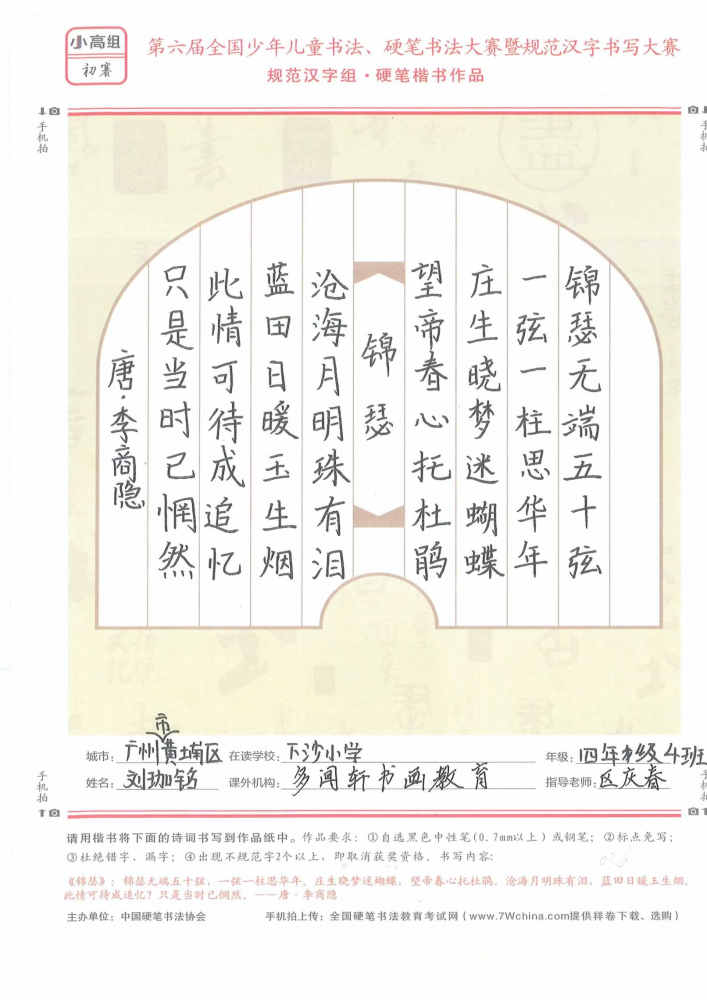 小高组
初赛
第六届全国少年儿童书法、硬笔书法大赛暨规范汉字书写大赛
规范汉字组·硬笔楷书作品
手机拍
手机拍
锦瑟无端五十弦
一弦一柱思华年
庄生晓梦迷蝴蝶
望帝春心托杜鹃
锦瑟
沧海月明珠有泪
蓝田日暖玉生烟
此情可待成追忆
只是当时已惘然
唐·李商隐
城市：广州市黄埔区 在读学校：下沙小学 年级：四年级4班
姓名：刘珈铭 课外机构：多闻轩书画教育 指导老师：区庆春
手机拍
手机拍
请用楷书将下面的诗词书写到作品纸中。作品要求：①自选黑色中性笔(0.7mm以上）或钢笔；②标点免写；
③杜绝错字、漏字；④出现不规范字2个以上，即取消获奖资格。书写内容：
《锦瑟》：锦瑟无端五十弦，一弦一柱思华年。庄生晓梦迷蝴蝶，望帝春心托杜鹃。沧海月明珠有泪，蓝田日暖玉生烟。
此情可待成追忆？只是当时已惘然。——唐·李商隐
主办单位：中国硬笔书法协会 手机拍上传：全国硬笔书法教育考试网（www.7Wchina.com提供样卷下载、选购）